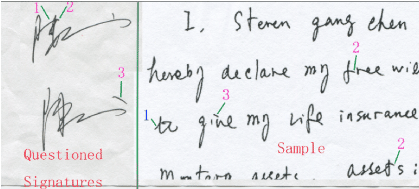 1 2
3
Questioned
Signatures
I, Steven gang chen
2
hereby declare my free wil
3
1 to give my life insurance
Sample
2
assets. assets